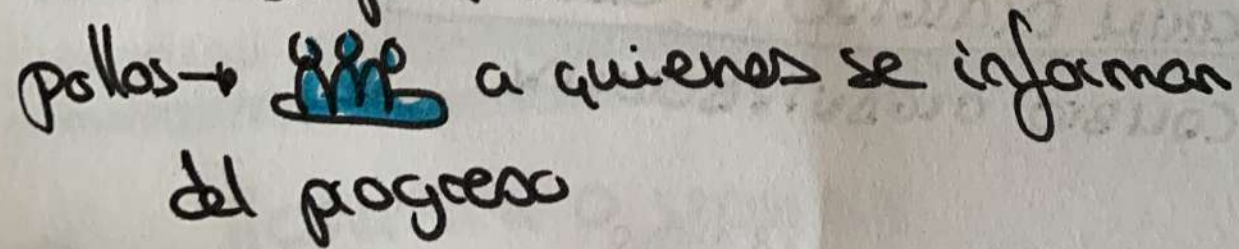 pollos→ a quienes se informan
del progreso